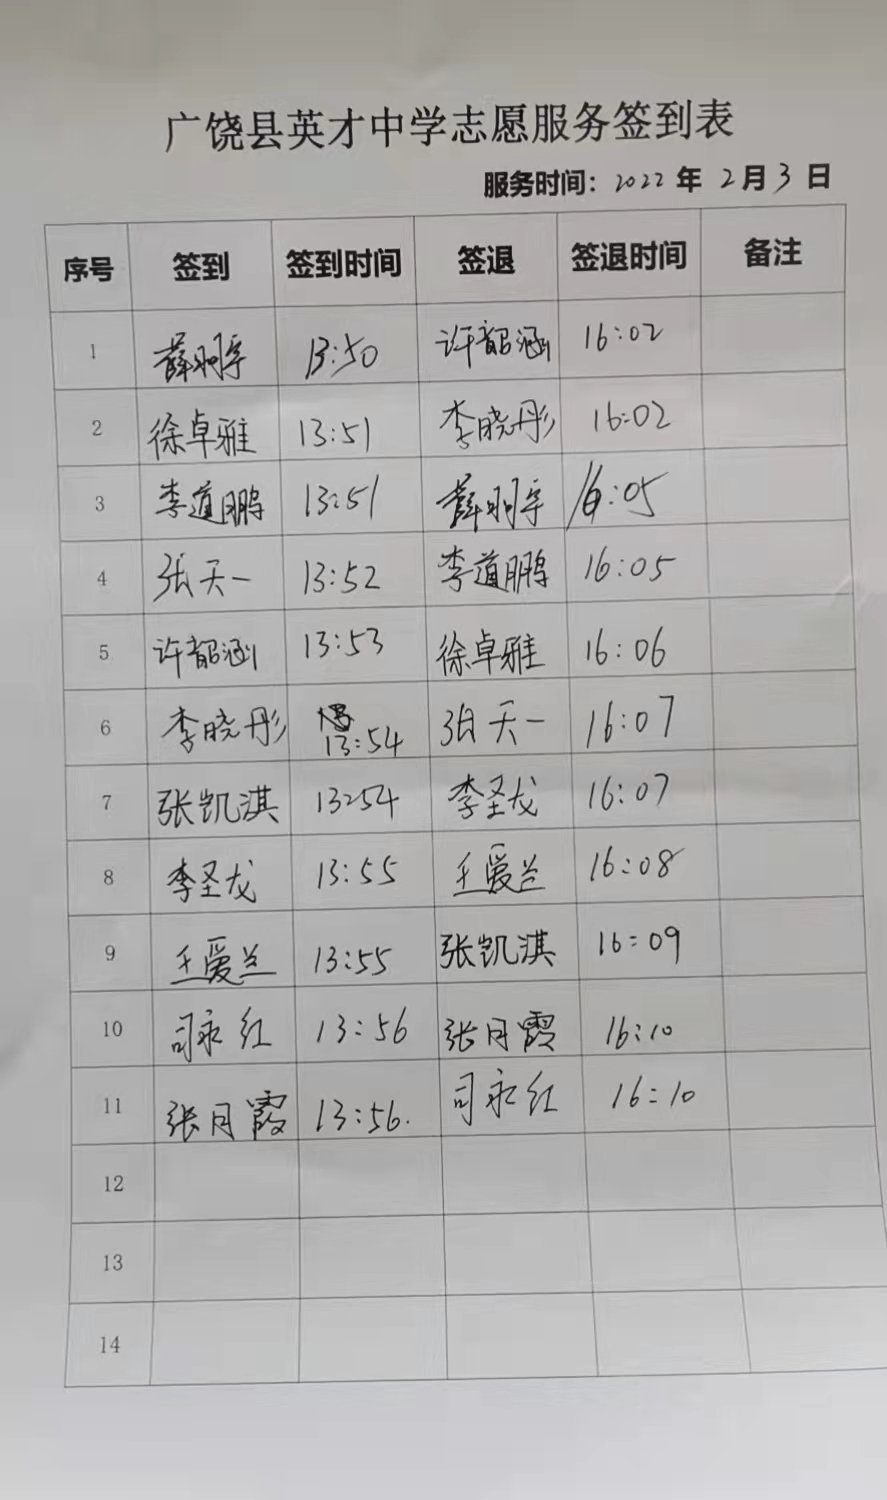 广饶县英才中学志愿服务签到表
服务时间：2022年2月3日
序号 签到 签到时间 签退 签退时间 备注
1 薛羽宇 13:50 许韶涵 16:02
2 徐卓雅 13:51 李晓彤 16:02
3 李道鹏 13:51 薛羽宇 16:05
4 张天一 13:52 李道鹏 16:05
5 许韶涵 13:53 徐卓雅 16:06
6 李晓彤 13:54 张天一 16:07
7 张凯淇 13:54 李圣龙 16:07
8 李圣龙 13:55 王爱兰 16:08
9 王爱兰 13:55 张凯淇 16:09
10 司永红 13:56 张月霞 16:10
11 张月霞 13:56. 司永红 16:10
12
13
14